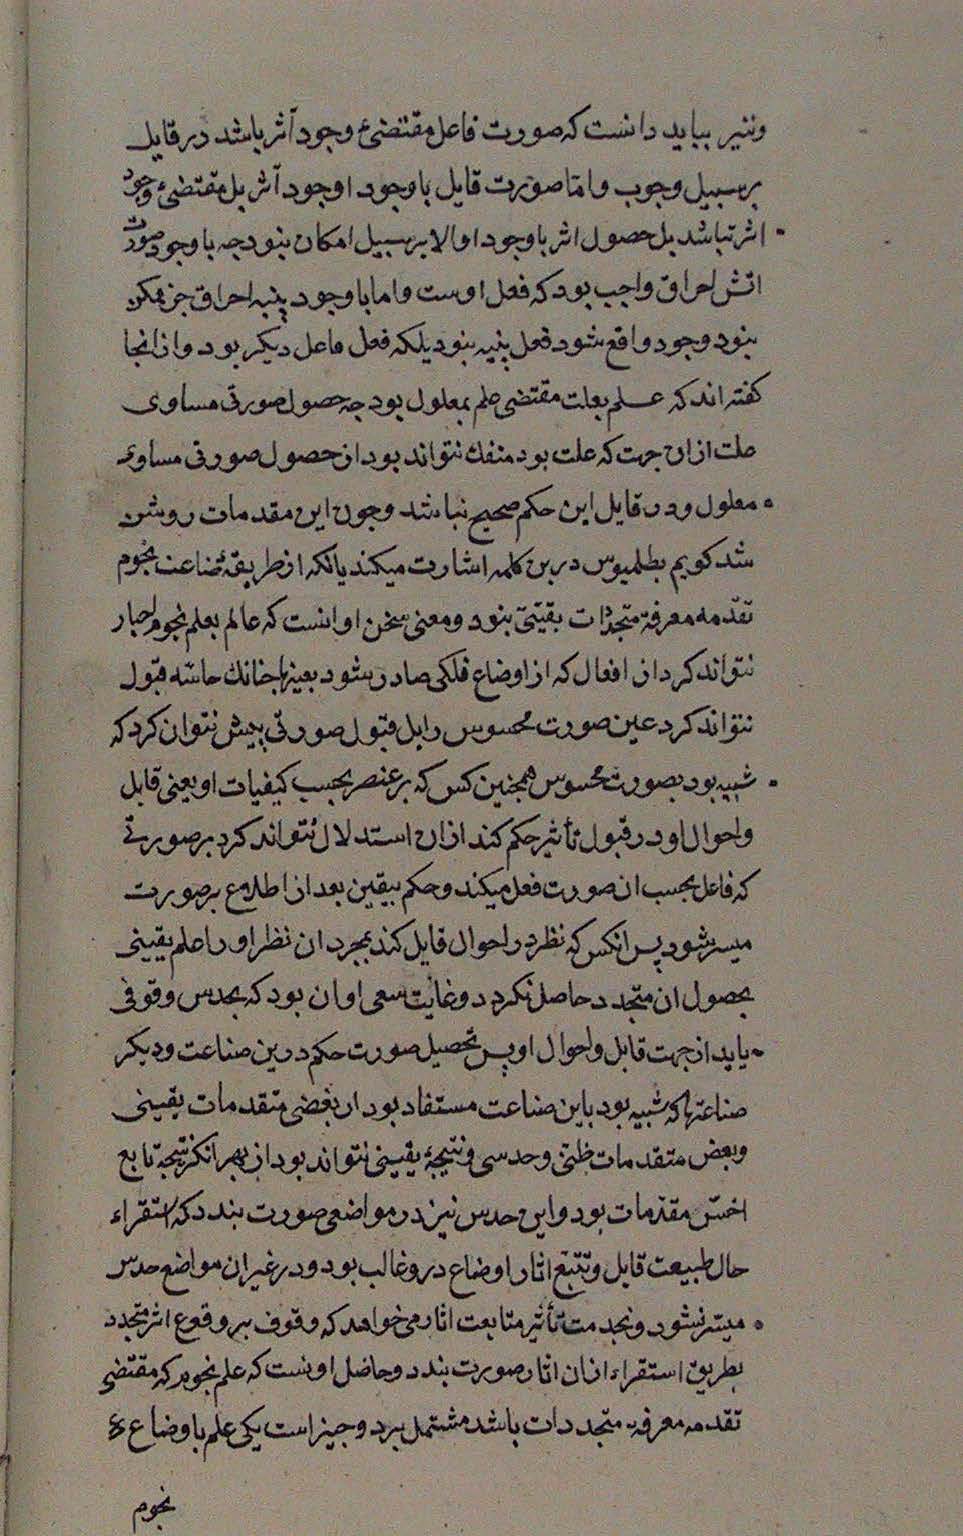 ونیز بباید دانست که صورت فاعل مقتضیٔ وجود آثر باشد در قابل
بر سبیل وجوب واما صورت قابل با وجود او وجود آثر بل مقتضیٔ وجود
اثر نباشد بل حصول اثر با وجود او الا بر سبیل امکان بنود جه با وجود صورت
اتش احراق واجب بود که فعل اوست واما با وجود پنبه احراق جز ممکن
بنود وجود واقع شود فعل پنبه بنود بلکه فعل فاعل دیکر بود وازانجا
کفته اند که علم بعلت مقتضی علم بمعلول بود جه حصول صورتی مساوی
علت ازان جهت که علت بود منفك نتواند بود از حصول صورتی مساوی
معلول ودر قابل این حکم صحیح نباشد وجون این مقدمات روشن
شد کویم بطلمیوس درین کلمه اشارت میکند بانکه از طریقهٔ صناعت نجوم
تقدمه معرفهٔ متجددات یقینی بنود ومعنی سخن او انست که عالم بعلم نجوم اخبار
نتواند کرد از افعال که از اوضاع فلکی صادر شود بعینها جنانك حاسه قبول
نتواند کرد عین صورت محسوس را بل قبول صورتی بیش نتوان کرد که
شبیه بود بصورت محسوس همجنین کس که بر عنصر بحسب کیفیات او یعنی قابل
واحوال او در قبول تأثیر حکم کند ازان استدلال نتواند کرد بر صورتی
که فاعل بحسب ان صورت فعل میکند وحکم بیقین بعد از اطلاع بر صورت
میسر شود پس انکس که نظر در احوال قابل کند بمجرد ان نظر او را علم یقینی
بحصول ان متجدد حاصل نکردد وغایت سعی او ان بود که بحدس وقوفی
یابد از جهت قابل واحوال او پس تحصیل صورت حکم درین صناعت ودیکر
صناعتها که شبیه بود باین صناعت مستفاد بود از بعضی مقدمات یقینی
وبعض مقدمات ظنی وحدسی ونتیجهٔ یقینی نتواند بود از بهر انکه نتیجه تابع
اخس مقدمات بود واین حدس نیز در مواضعی صورت بندد که استقراء
حال طبیعت قابل وتتبع اثار اوضاع درو غالب بود ودر غیر ان مواضع حدس
میسر نشود تأثیر متابعت اثار می خواهد که وقوف بر وقوع اثر متجدد
بطریق استقراء ازان اثار صورت بندد وحاصل اونست که علم نجوم که مقتضی
تقدمه معرفهٔ متجددات باشد مشتمل بر دو جیز است یکی علم با وضاع
نجوم